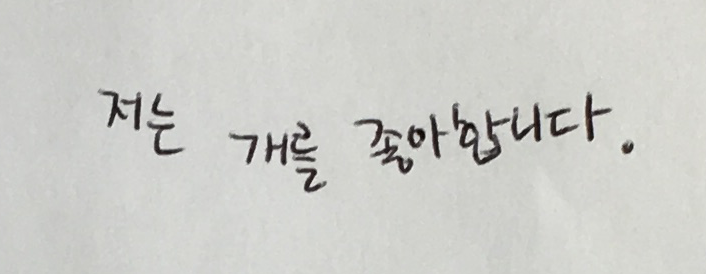 저는 개를 좋아합니다.